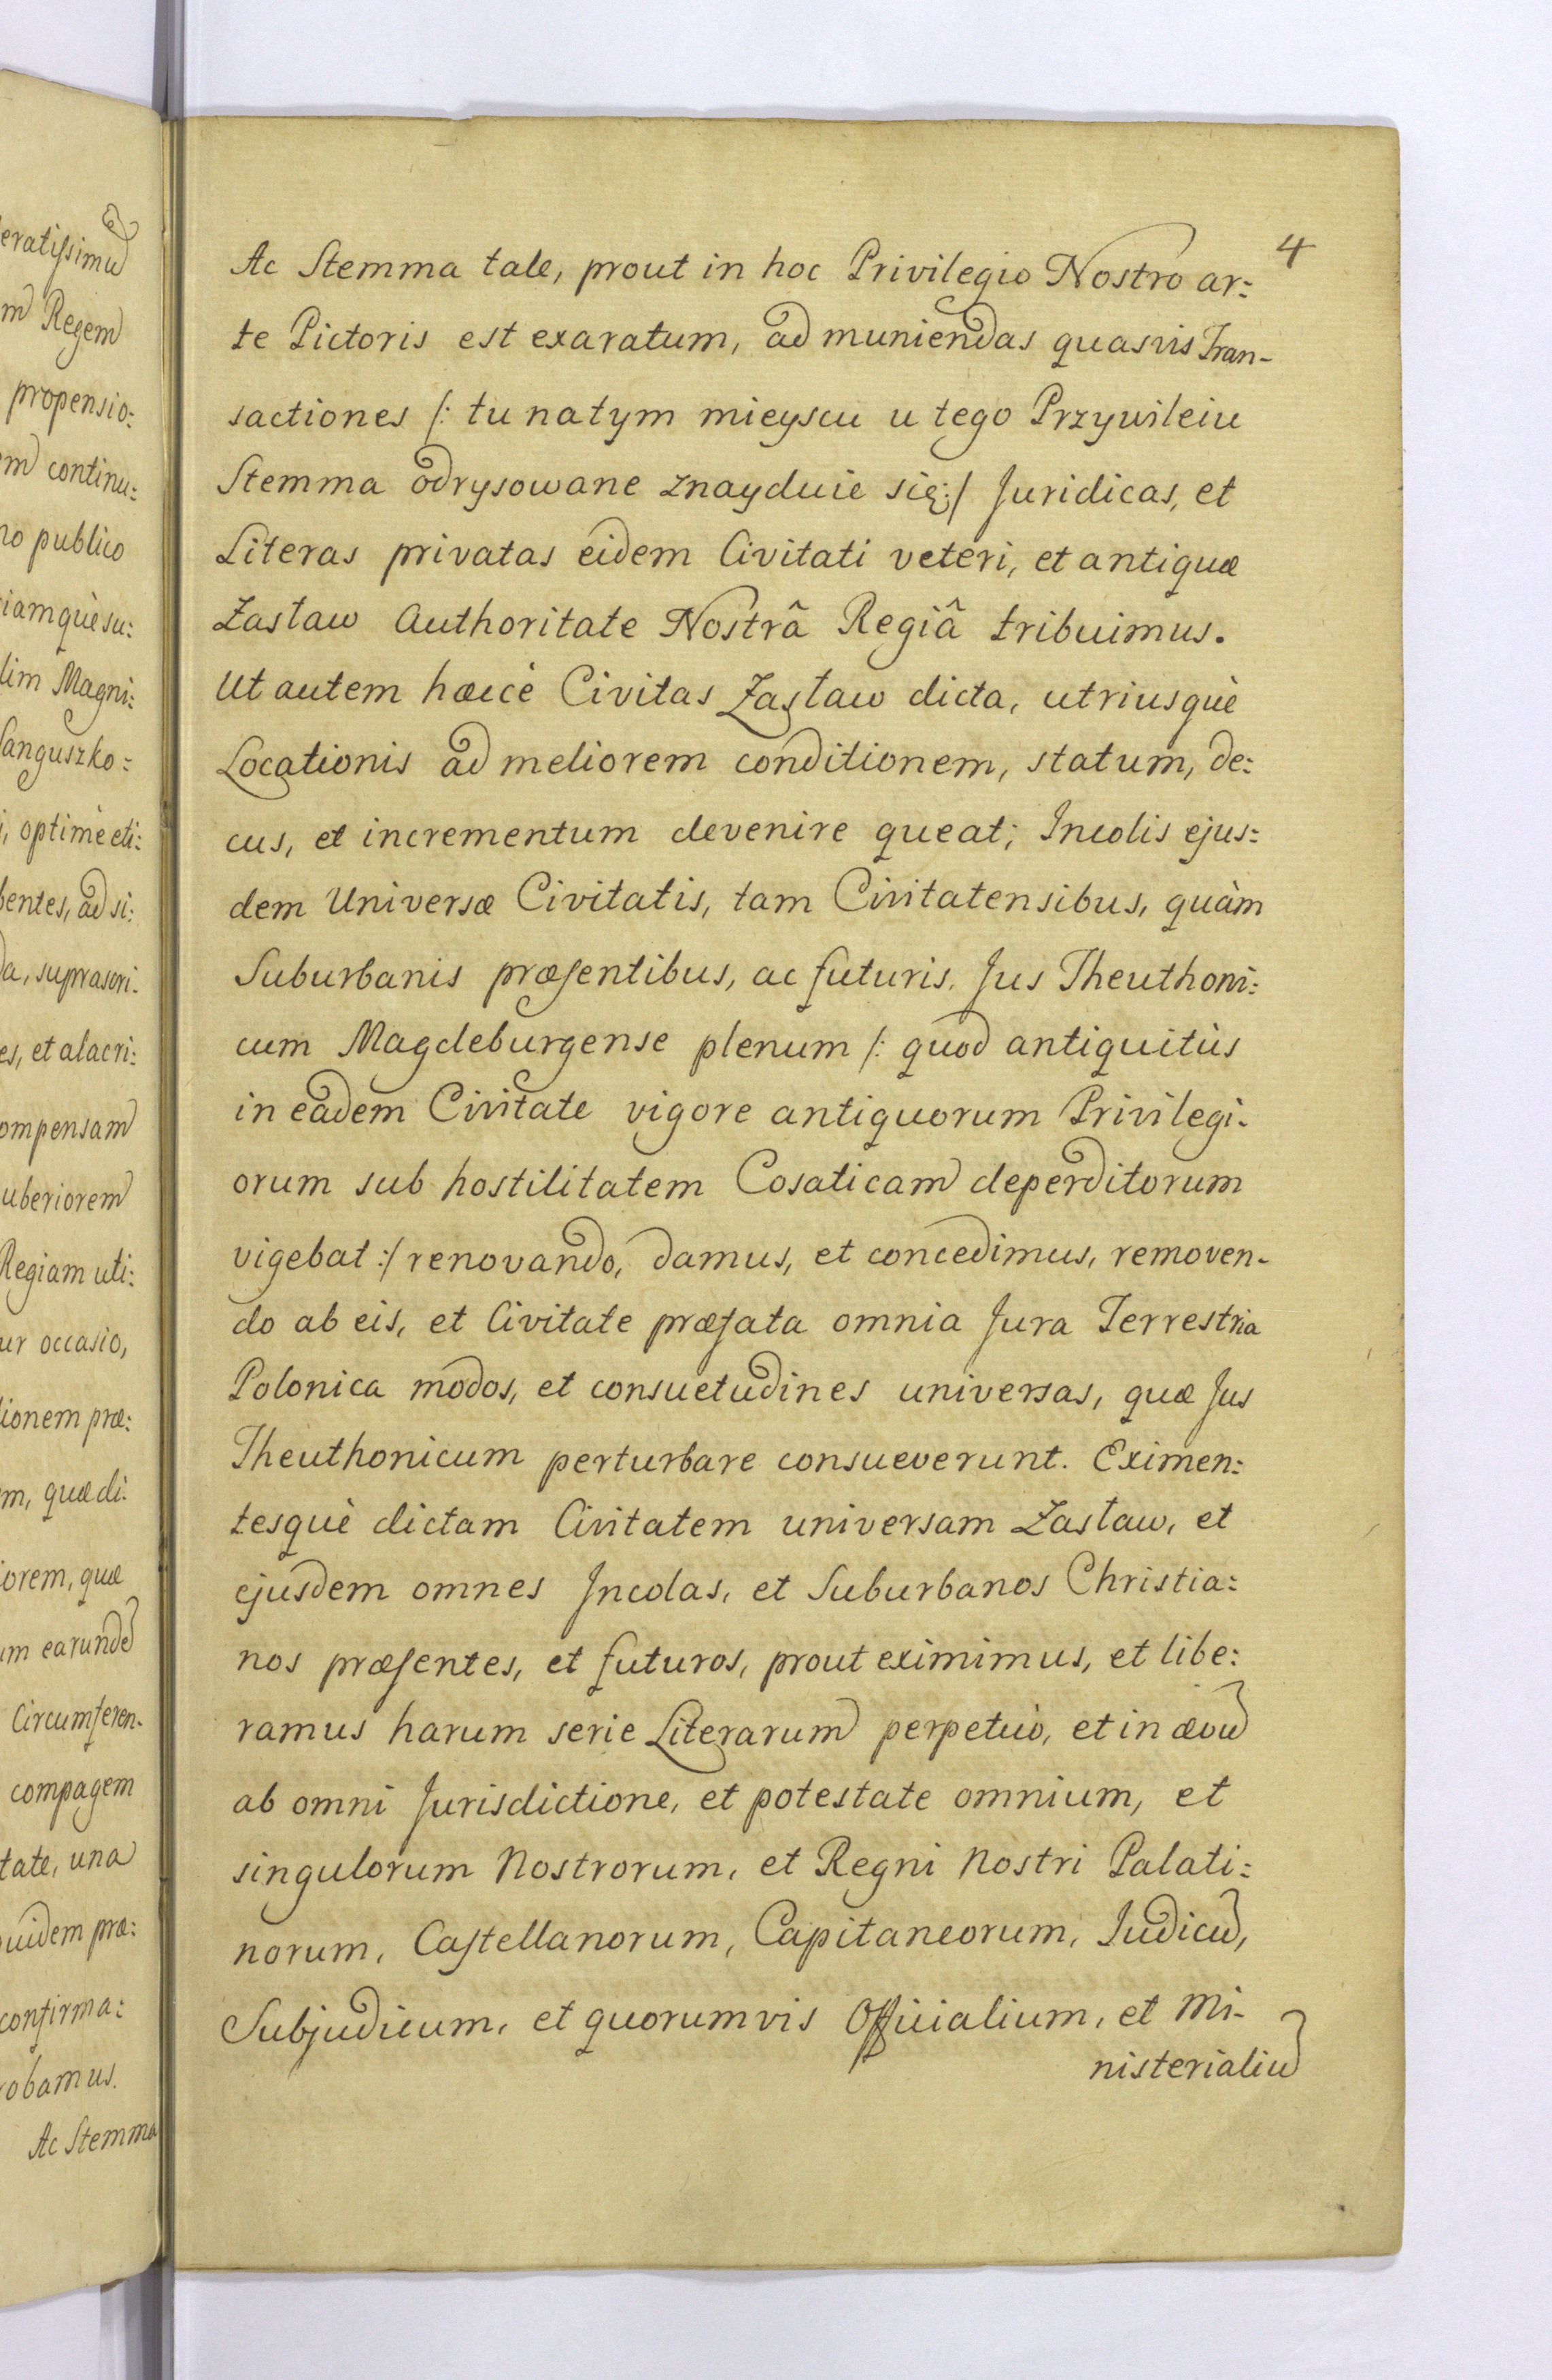 eratissimũ
m Regem
propensio:
em continu:
no publico
iamquè su:
lim Magni:
Sanguszko:
i, optimè eti:
bentes, ad si:
da, suprascri-
es, et alacri:
ompensam
uberiorem
Regiam uti:
ur occasio,
tionem præ:
m, quæ di:
iorem, quæ
um earundẽ
Circumferen-
compagem
tate, una
quidem præ:
confirma:
robamus.
Ac Stemma
4
Ac Stemma tale, prout in hoc Privilegio Nostro ar:
te Pictoris est exaratum, ad muniendas quasvis Tran-
sactiones /: tu natym mieyscu u tego Przywileiu
Stemma odrysowane znayduie się :/ Juridicas, et
Literas privatas eidem Civitati veteri, et antiquæ
Zasław Authoritate Nostrâ Regiâ tribuimus.
Ut autem hæcè Civitas Zasław dicta, utriusquè
Locationis ad meliorem conditionem, statum, de:
cus, et incrementum devenire queat; Incolis ejus:
dem Universæ Civitatis, tam Civitatensibus, quàm
Suburbanis præsentibus, ac futuris. Jus Theuthoni:
cum Magdeburgense plenum /: quod antiquitùs
in eadem Civitate vigore antiquorum Privilegi-
orum sub hostilitatem Cosaticam deperditorum
vigebat :/ renovando, damus, et concedimus, removen-
do ab eis, et Civitate præfata omnia Jura Terrestria
Polonica modos, et consuetudines universas, quæ Jus
Theuthonicum perturbare consueverunt. Eximen:
tesquè dictam Civitatem universam Zasław, et
ejusdem omnes Incolas, et Suburbanos Christia:
nos præsentes, et futuros, prout eximimus, et libe:
ramus harum serie Literarum perpetuò, et in ævũ
ab omni Jurisdictione, et potestate omnium, et
singulorum Nostrorum, et Regni Nostri Palati:
norum, Castellanorum, Capitaneorum, Judicũ,
Subjudicum, et quorumvis Officialium, et Mi-
nisterialiũ